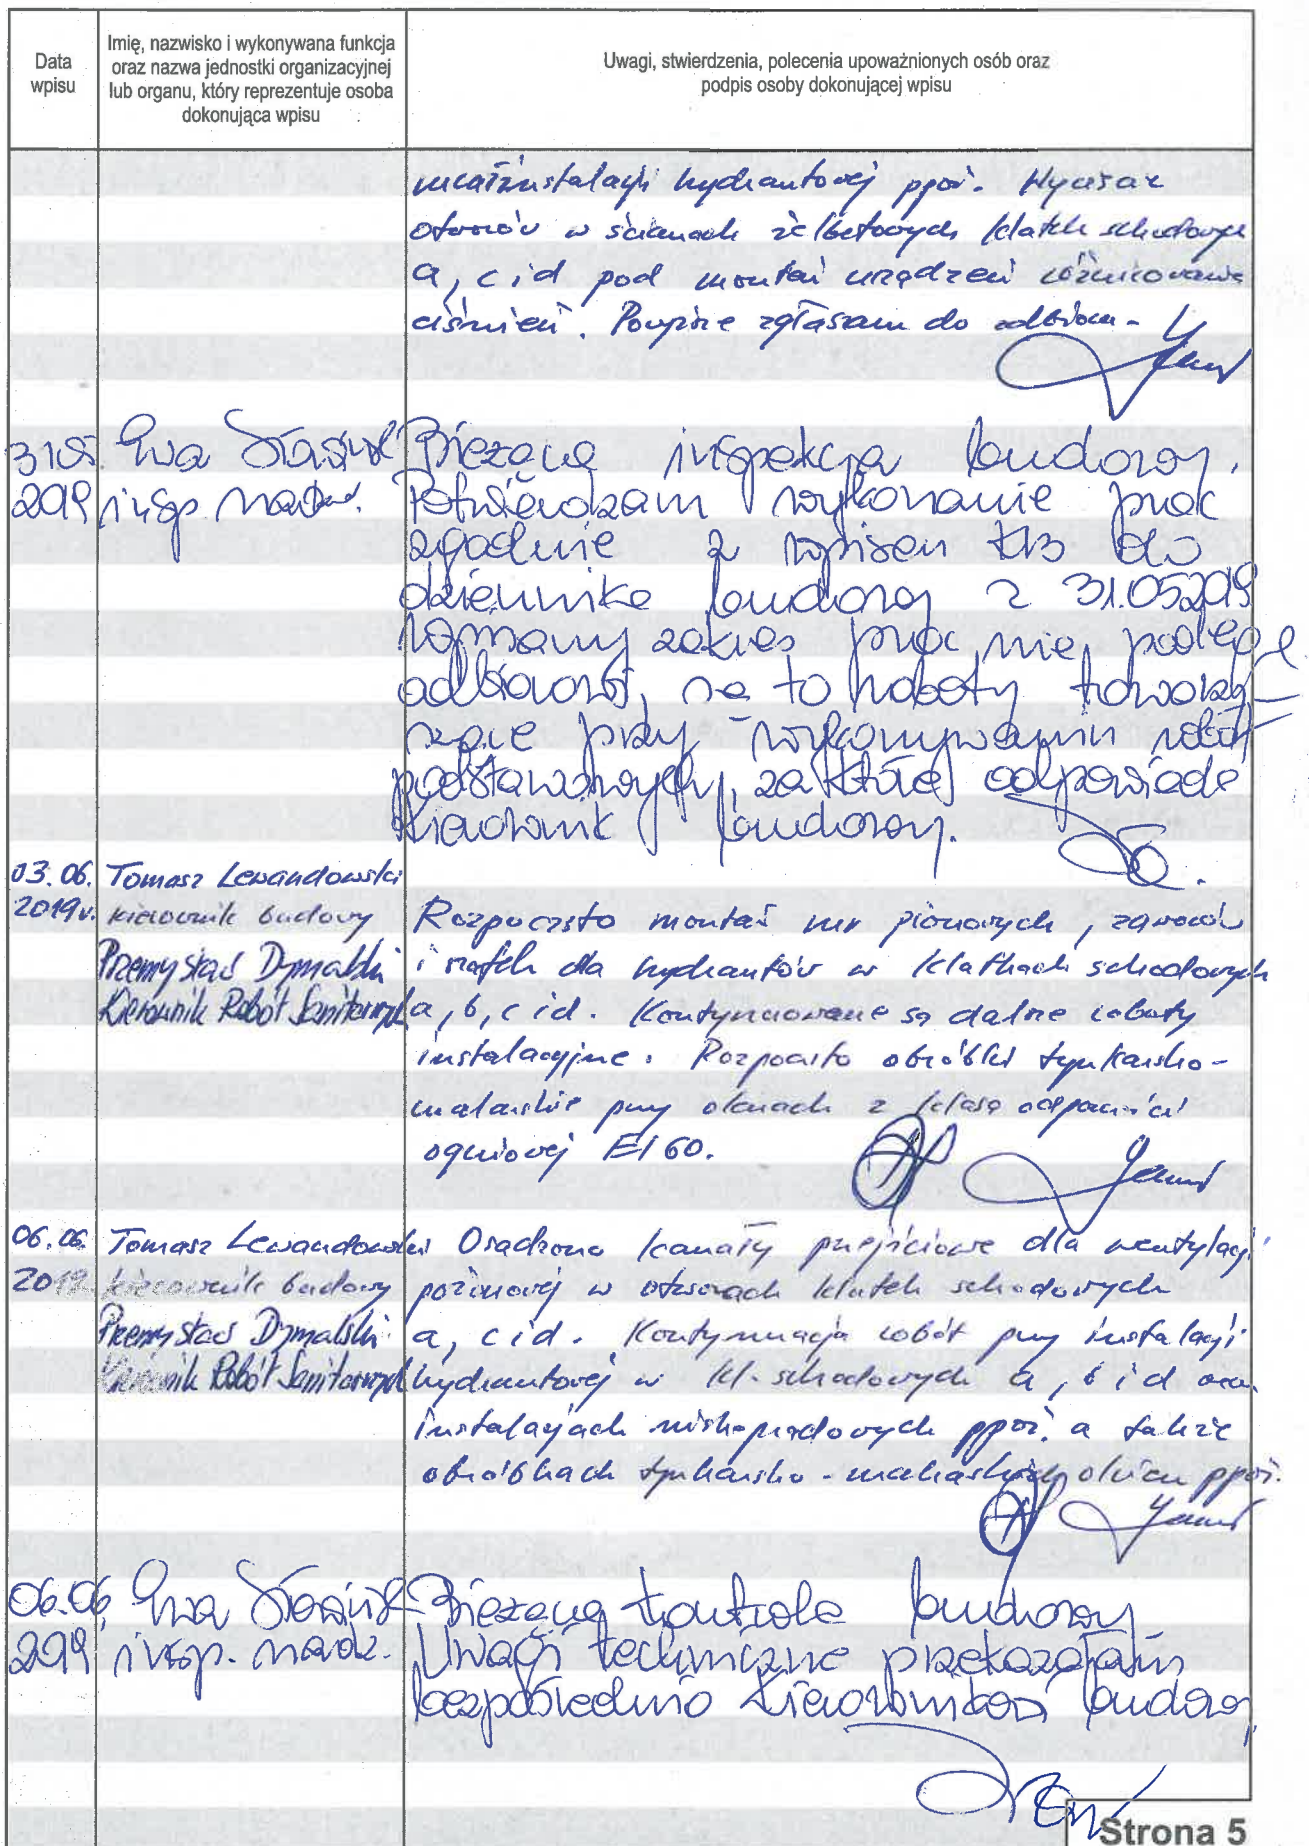 Data
wpisu
Imię, nazwisko i wykonywana funkcja
oraz nazwa jednostki organizacyjnej
lub organu, który reprezentuje osoba
dokonująca wpisu
Uwagi, stwierdzenia, polecenia upoważnionych osób oraz
podpis osoby dokonującej wpisu
instalacji hydrantowej ppoż.
otworów w ścianach żelbetowych klatek schodowych
a, c i d pod montaż urządzeń różnicowania
ciśnień. Powyższe zgłaszam do odbioru.
31.05. Ewa
2019 insp. nadz.
Bieżąca inspekcja budowy.
Potwierdzam wykonanie prac
zgodnie z wpisem KB do
dziennika budowy z 31.05.2019
zakres prac nie podlega
odbiorowi, są to roboty towarzy-
szące przy wykonywaniu robót
podstawowych, za które odpowiada
kierownik budowy.
03.06. Tomasz Lewandowski
2019r. kierownik budowy
Przemysław Dymalski
Kierownik Robót Sanitarnych
Rozpoczęto montaż rur pionowych, zaworów
i szafek dla hydrantów w klatkach schodowych
a, b, c i d. Kontynuowane są dalsze roboty
instalacyjne. Rozpoczęto obróbki tynkarsko-
malarskie przy oknach z klasą odporności
ogniowej EI 60.
06.06. Tomasz Lewandowski
2019 kierownik budowy
Przemysław Dymalski
Kierownik Robót Sanitarnych
Osadzono kanały przejściowe dla wentylacji
pożarowej w otworach klatek schodowych
a, c i d. Kontynuacja robót przy instalacji
hydrantowej w kl. schodowych a, b i d oraz
instalacjach niskoprądowych ppoż. a także
obróbkach tynkarsko-malarskich okien ppoż.
06.06. Ewa
2019 insp. nadz.
Bieżąca kontrola budowy
Uwagi techniczne przekazałam
bezpośrednio kierownikowi budowy
Strona 5